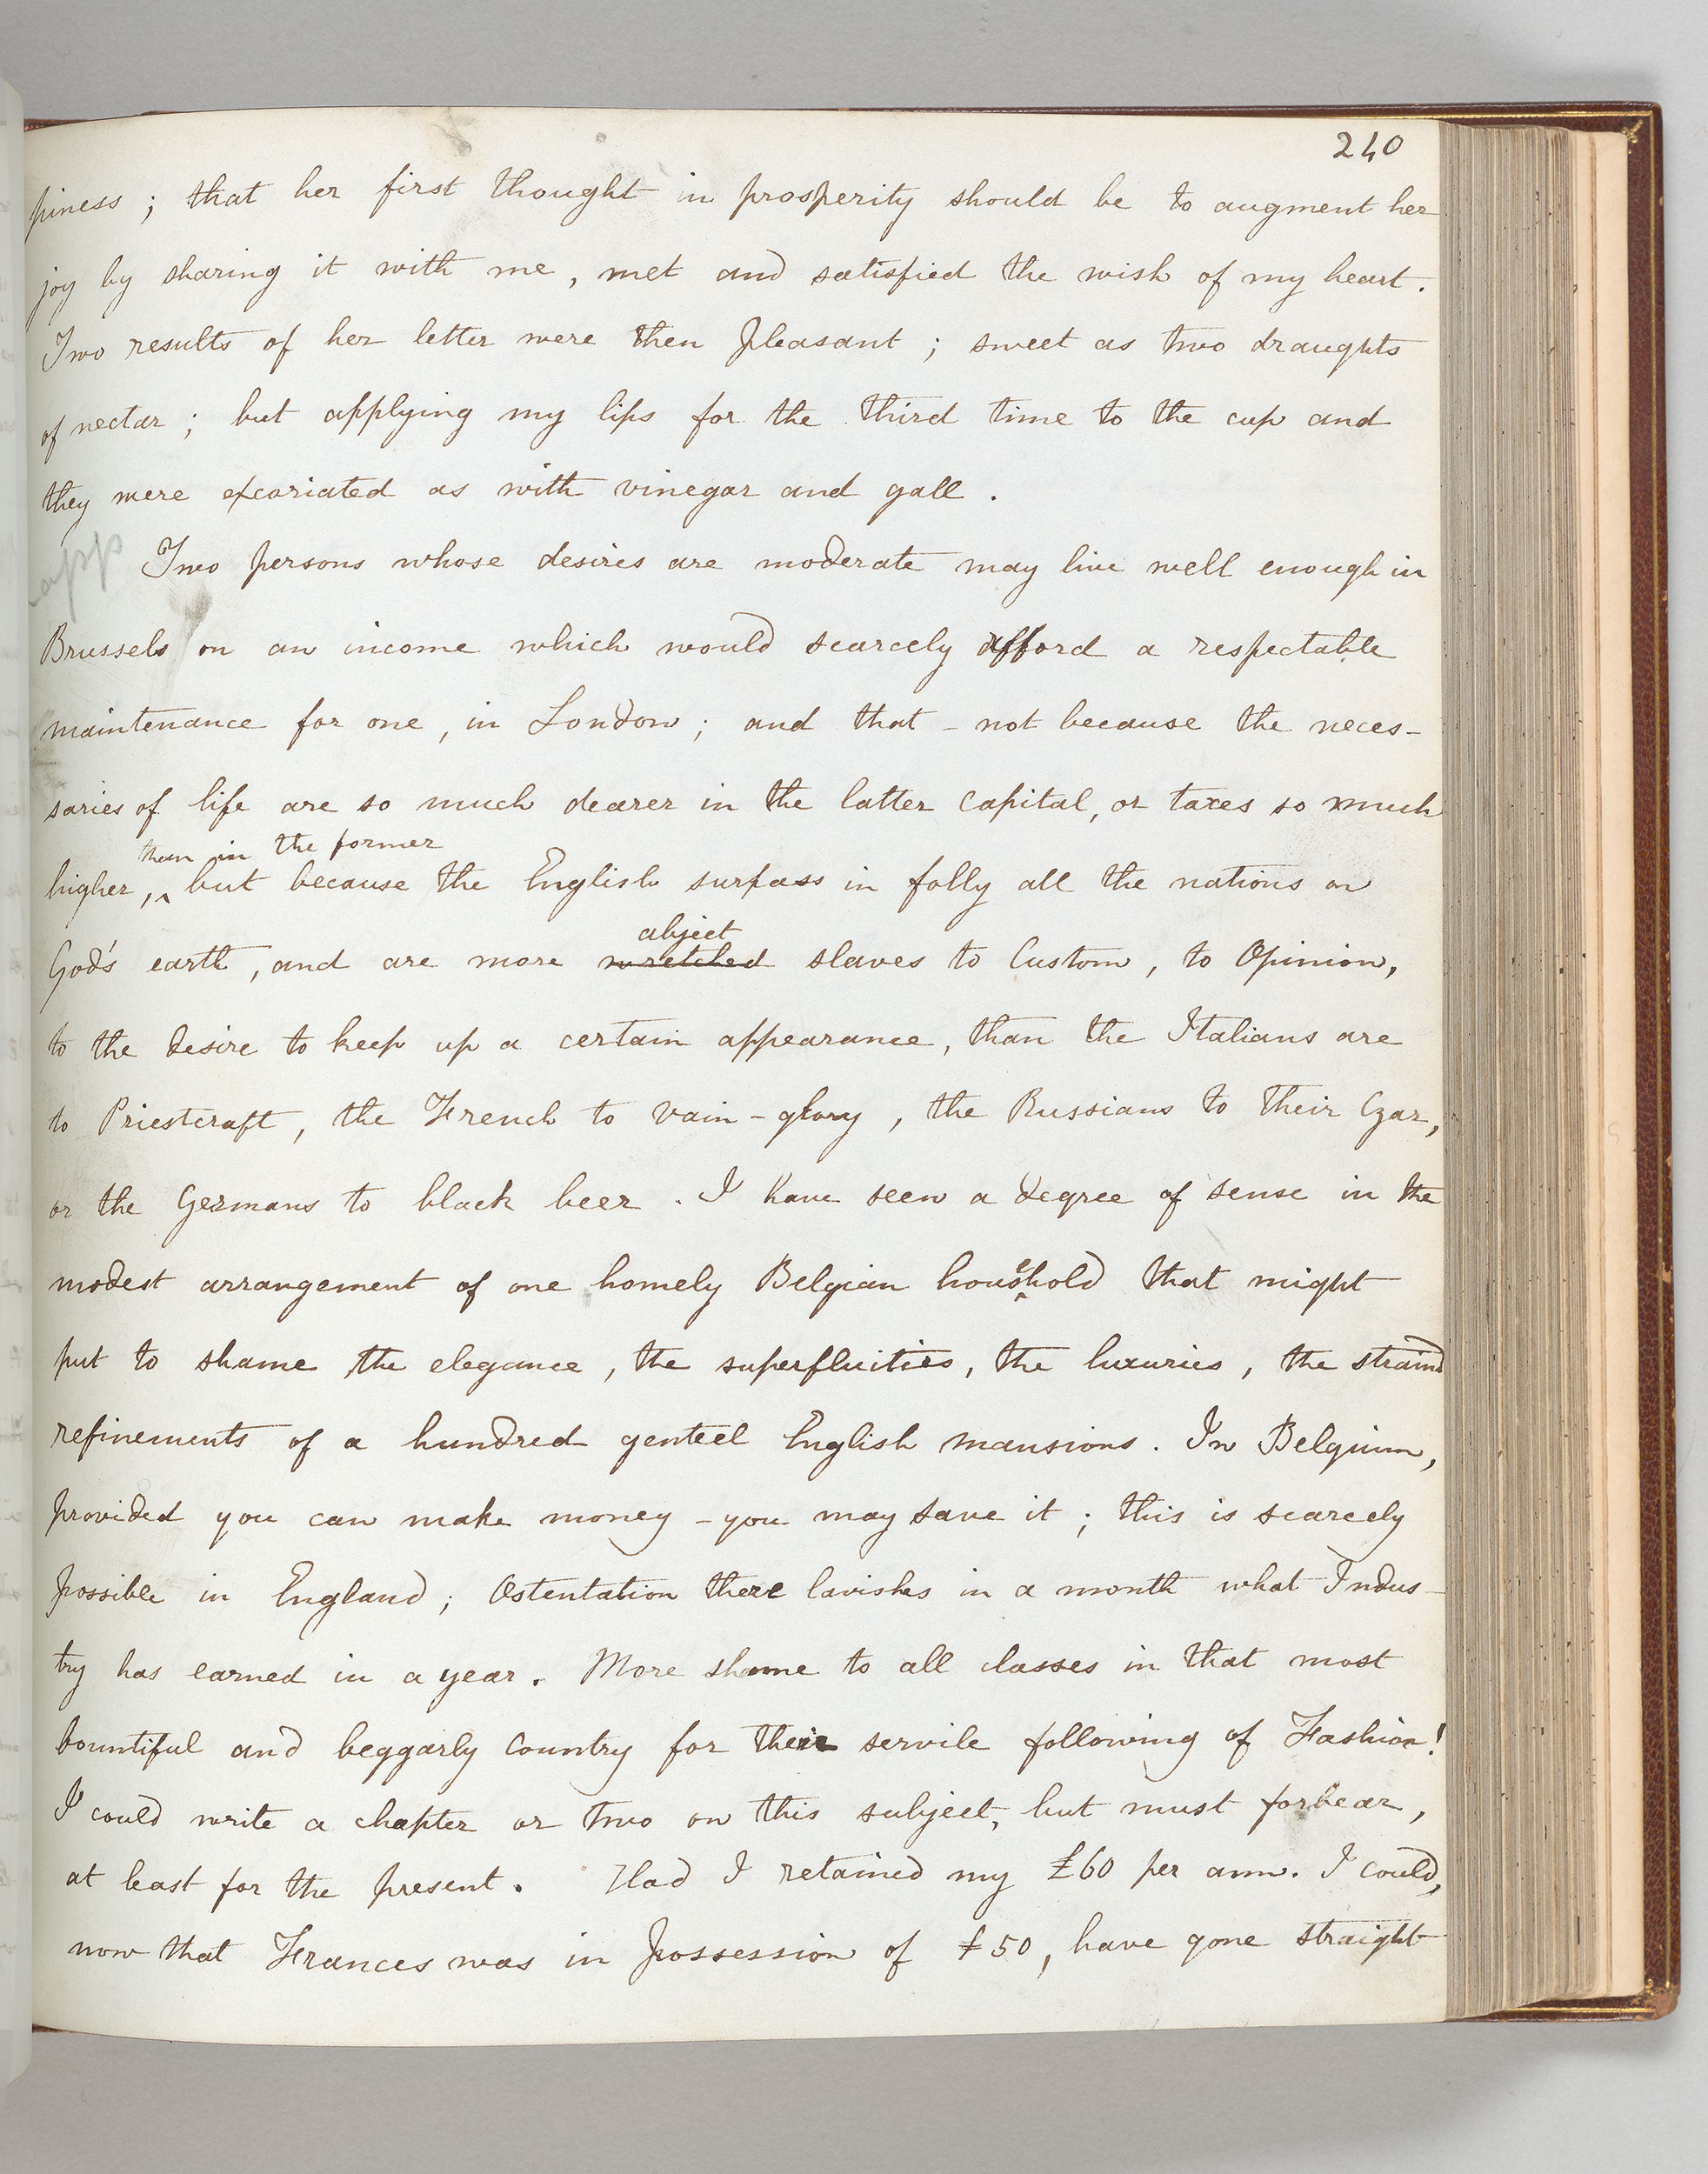 240
piness ; that her first thought in prosperity should be to augment her
joy by sharing it with me , met and satisfied the wish of my heart .
Two results of her letter were then pleasant ; sweet as two draughts
of nectar ; but applying my lips for the third time to the cup and
they were excoriated as with vinegar and gall .
app
Two persons whose desires are moderate may live well enough in
Brussels on an income which would scarcely afford a respectable
maintenance for one , in London ; and that - not because the neces-
saries of life are so much dearer in the latter capital, or taxes so much
than in the former
higher, ‸ but because the English surpass in folly all the nations on
God's earth , and are more wretched slaves to Custom , to Opinion,
abject
to the desire to keep up a certain appearance, than the Italians are
to Priestcraft , the French to vain-glory , the Russians to their Czar,
or the Germans to black beer . I have seen a degree of sense in the
modest arrangement of one homely Belgian household that might
put to shame the elegance , the superfluities, the luxuries , the straind
refinements of a hundred genteel English mansions . In Belgium,
provided you can make money - you may save it ; this is scarcely
possible in England ; Ostentation there lavishes in a month what Indus-
try has earned in a year . More shame to all classes in that most
bountiful and beggarly country for their servile following of Fashion!
I could write a chapter or two on this subject, but must forbear ,
at least for the present . Had I retained my £60 per ann. I could,
now that Frances was in possession of £50 , have gone straight